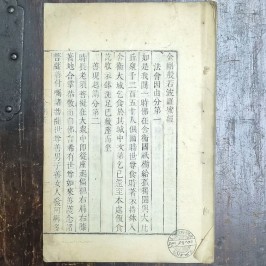 金剛般若波羅蜜經
法會因由分第一
如是我聞一時佛在舍衛國祇樹給孤獨園與大比
丘衆千二百五十人俱爾時世尊食時著衣持鉢入
舍衛大城乞食於其城中次第乞已還至本處飯食
訖收衣鉢洗足已敷座而坐
善現起請分第二
時長老須菩提在大衆中即從座起偏袒右肩右膝
著地合掌恭敬而白佛言希有世尊如來善護念諸
菩薩善付囑諸菩薩世尊善男子善女人發阿耨多